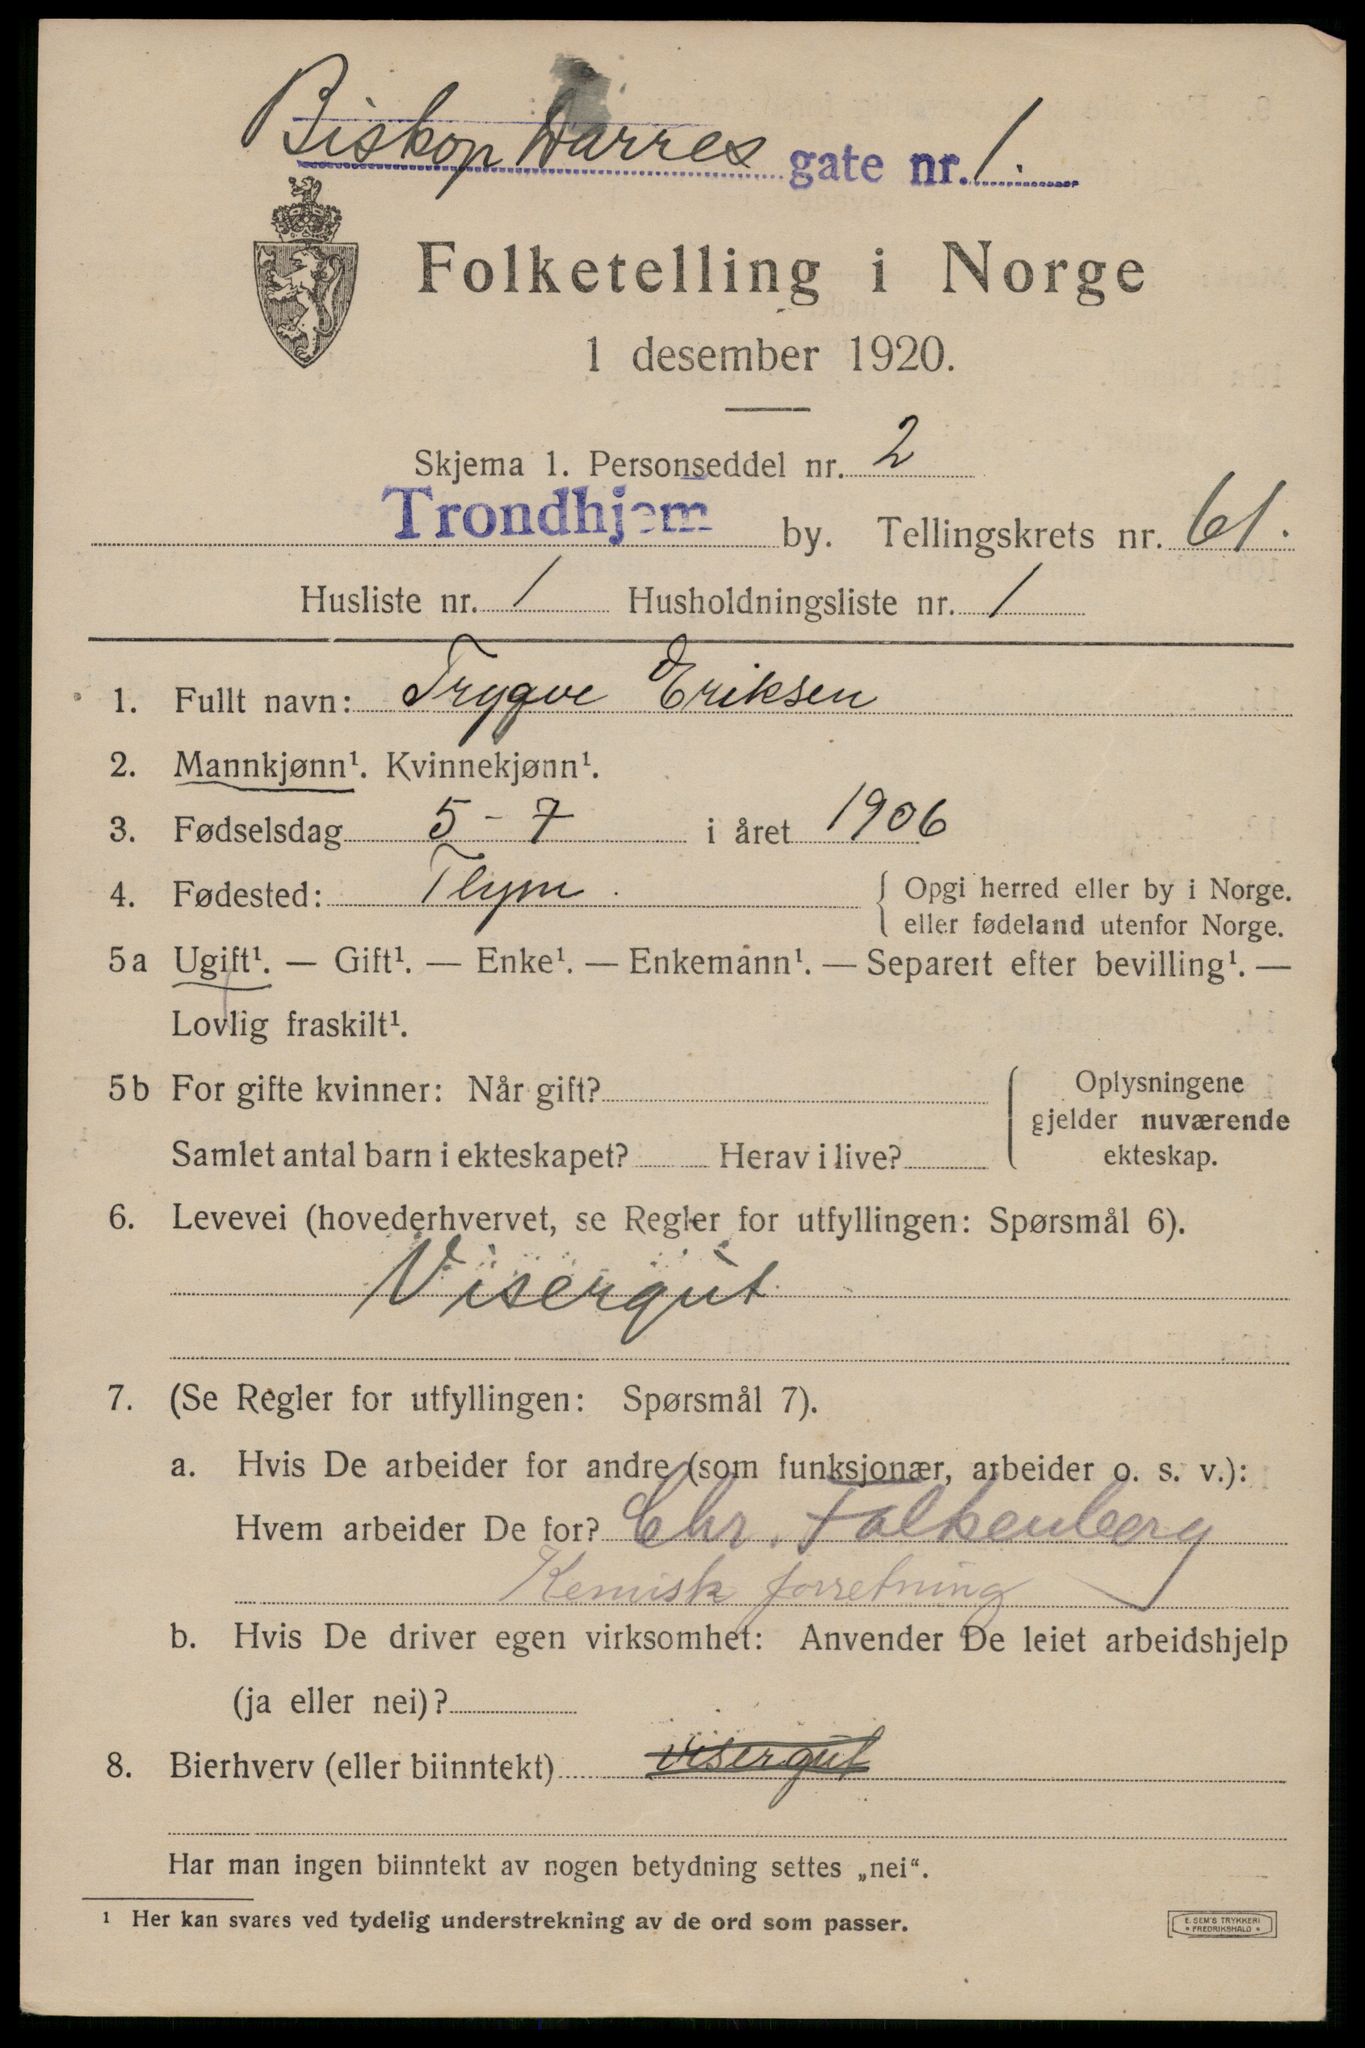 Biskop Darres gate nr. 1.
Folketelling i Norge
1 desember 1920.
Skjema 1. Personseddel nr. 2
Trondhjem by. Tellingskrets nr. 61.
Husliste nr. 1 Husholdningsliste nr. 1
1. Fullt navn: Trygve Eriksen
2. Mannkjønn¹. Kvinnekjønn¹.
3. Fødselsdag 5-7 i året 1906
4. Fødested: Thjm. { Opgi herred eller by i Norge.
eller fødeland utenfor Norge.
5a Ugift¹. — Gift¹. — Enke¹. — Enkemann¹. — Separert efter bevilling¹. —
Lovlig fraskilt¹.
5b For gifte kvinner: Når gift? Oplysningene
gjelder nuværende
Samlet antal barn i ekteskapet? Herav i live? ekteskap.
6. Levevei (hovederhvervet, se Regler for utfyllingen: Spørsmål 6).
Visergut
7. (Se Regler for utfyllingen: Spørsmål 7).
a. Hvis De arbeider for andre (som funksjonær, arbeider o. s. v.):
Hvem arbeider De for? Chr. Falkenberg
Kemisk forretning
b. Hvis De driver egen virksomhet: Anvender De leiet arbeidshjelp
(ja eller nei)?
8. Bierhverv (eller biinntekt) visergut
Har man ingen biinntekt av nogen betydning settes „nei“.
¹ Her kan svares ved tydelig understrekning av de ord som passer.
E. SEM'S TRYKKERI
FREDRIKSHALD